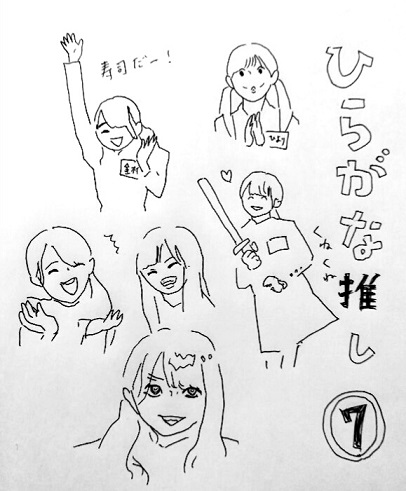 ひらがな推し⑦
寿司だー！
金村
ひより
くねくね